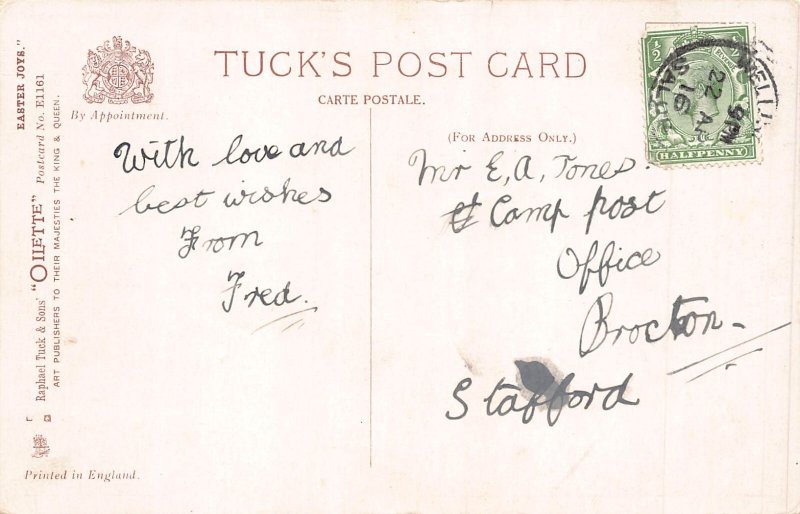 TUCK'S POST CARD
CARTE POSTALE.
By Appointment.
(FOR ADDRESS ONLY.)
With love and
best wishes
From
Fred.
Mr E, A, Jones.
Camp post
Office
Brocton
Stafford
EASTER JOYS."
Raphael Tuck & Sons' "OILETTE" Postcard No. E1161
ART PUBLISHERS TO THEIR MAJESTIES THE KING & QUEEN.
Printed in England.
½
HALFPENNY
WELLIN
9 PM
22 A
16
SAL